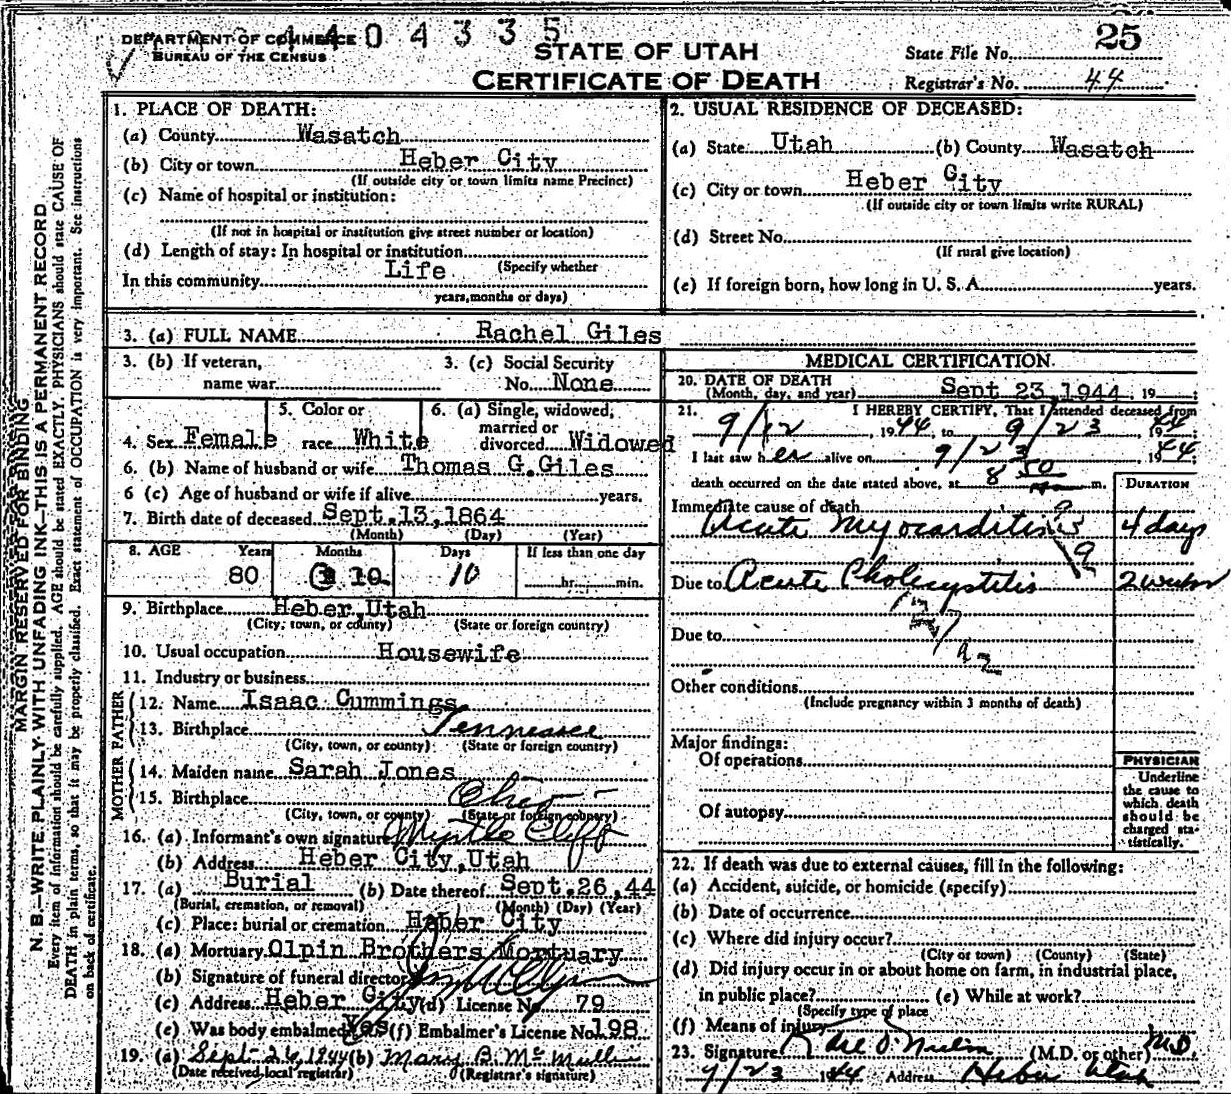 DEPARTMENT OF COMMERCE
BUREAU OF THE CENSUS
1404335
STATE OF UTAH
CERTIFICATE OF DEATH
25
State File No.
Registrar's No. 44
MARGIN RESERVED FOR BINDING
N. B.—WRITE PLAINLY, WITH UNFADING INK—THIS IS A PERMANENT RECORD
Every item of information should be carefully supplied. AGE should be stated EXACTLY. PHYSICIANS should state CAUSE OF
DEATH in plain terms, so that it may be properly classified. Exact statement of OCCUPATION is very important. See instructions
on back of certificate.
1. PLACE OF DEATH:
(a) County Wasatch
(b) City or town Heber City
(If outside city or town limits name Precinct)
(c) Name of hospital or institution:
(If not in hospital or institution give street number or location)
(d) Length of stay: In hospital or institution
(Specify whether
In this community Life
years, months or days)
2. USUAL RESIDENCE OF DECEASED:
(a) State Utah (b) County Wasatch
(c) City or town Heber City
(If outside city or town limits write RURAL)
(d) Street No.
(If rural give location)
(e) If foreign born, how long in U. S. A. years.
3. (a) FULL NAME Rachel Giles
3. (b) If veteran,
name war
3. (c) Social Security
No. None
4. Sex Female
5. Color or
race White
6. (a) Single, widowed,
married or
divorced Widowed
6. (b) Name of husband or wife Thomas G. Giles
6 (c) Age of husband or wife if alive years.
7. Birth date of deceased Sept. 13, 1864
(Month) (Day) (Year)
8. AGE Years Months Days If less than one day
80 10 hr. min.
9. Birthplace Heber, Utah
(City, town, or county) (State or foreign country)
10. Usual occupation Housewife
11. Industry or business
FATHER
12. Name Isaac Cummings
13. Birthplace Tennessee
(City, town, or county) (State or foreign country)
MOTHER
14. Maiden name Sarah Jones
15. Birthplace Ohio
(City, town, or county) (State or foreign country)
16. (a) Informant's own signature Myrtle Cliff
(b) Address Heber City, Utah
17. (a) Burial (b) Date thereof Sept. 26, 44
(Burial, cremation, or removal) (Month) (Day) (Year)
(c) Place: burial or cremation Heber City
18. (a) Mortuary Olpin Brothers Mortuary
(b) Signature of funeral director
(c) Address Heber City (d) License No. 79
(e) Was body embalmed Yes (f) Embalmer's License No. 198
19. (a) Sept. 26, 1944 (b) Mary B. McMullin
(Date received local registrar) (Registrar's signature)
MEDICAL CERTIFICATION
20. DATE OF DEATH
(Month, day, and year) Sept 23, 1944, 19
21. I HEREBY CERTIFY, That I attended deceased from
9/12, 1944, to 9/23, 1944
I last saw her alive on 9/23 1944
death occurred on the date stated above, at 8 50 m.
DURATION
Immediate cause of death
Acute Myocarditis 4 days
Due to Acute Cholecystitis 2 weeks
Due to
Other conditions
(Include pregnancy within 3 months of death)
Major findings:
Of operations
Of autopsy
PHYSICIAN
Underline
the cause to
which death
should be
charged sta-
tistically.
22. If death was due to external causes, fill in the following:
(a) Accident, suicide, or homicide (specify)
(b) Date of occurrence
(c) Where did injury occur?
(City or town) (County) (State)
(d) Did injury occur in or about home on farm, in industrial place,
in public place? (e) While at work?
(Specify type of place
(f) Means of injury
23. Signature (M.D. or other) M.D.
9/23 1944 Address Heber Utah